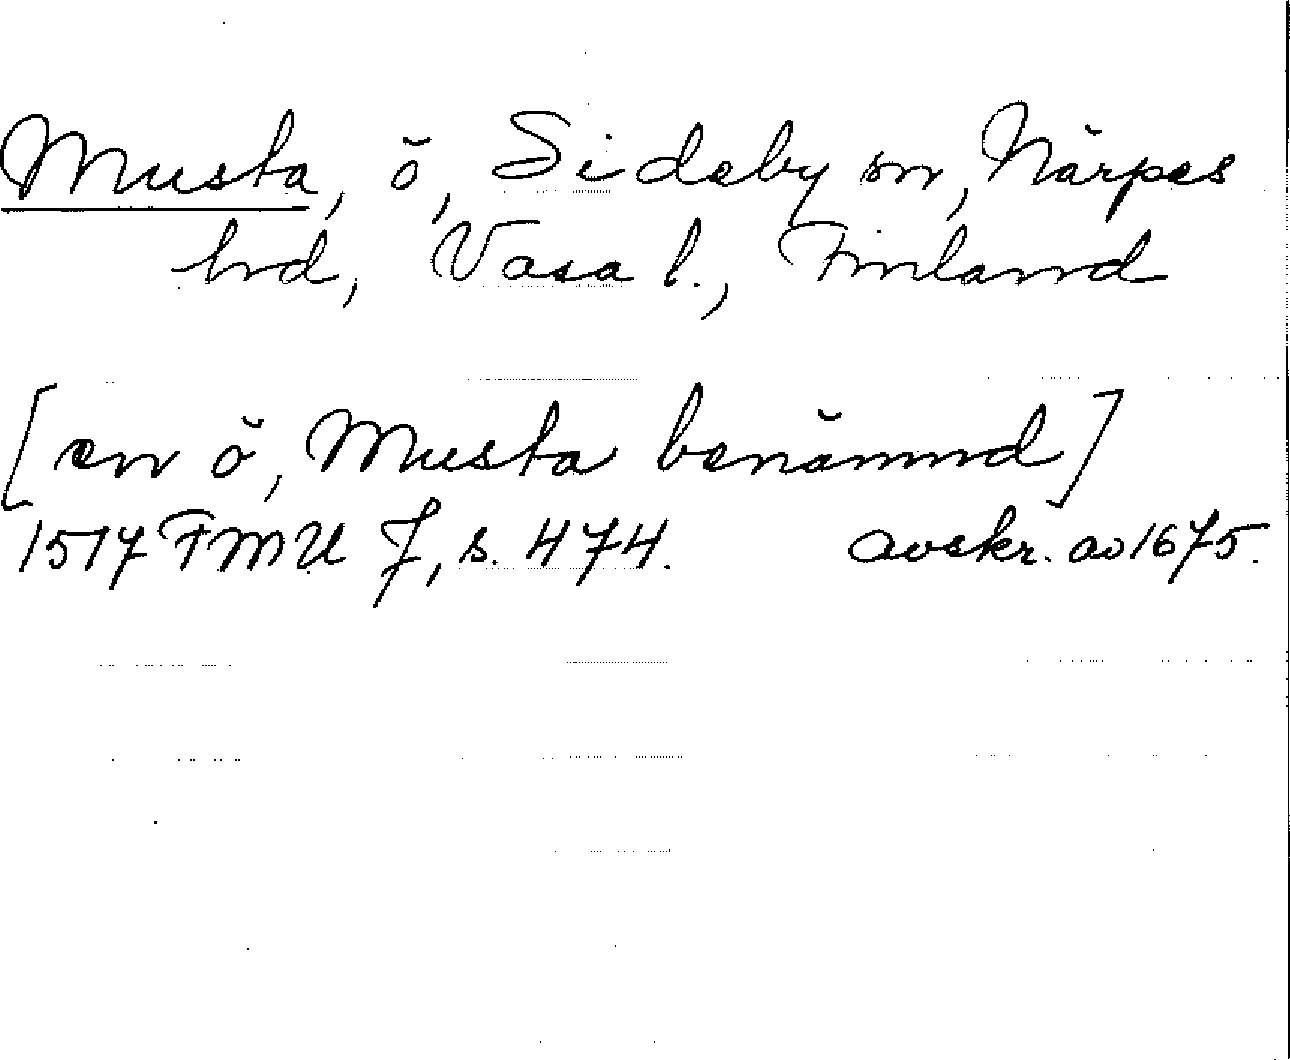 Musta, ö, Sideby sn, Närpes
hd, Vasa l., Finland
[en ö, Musta benämnd]
1517 FMU 7, s. 474. avskr. av 1675.